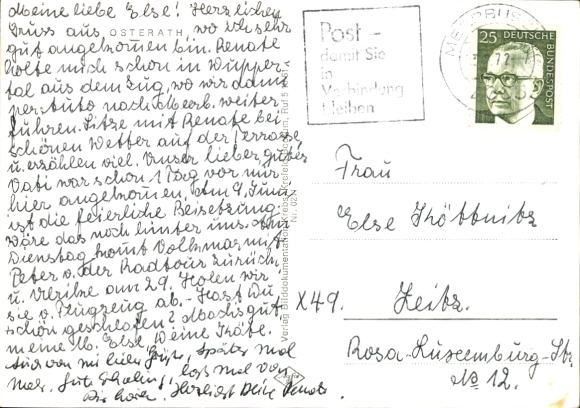 Meine liebe Else! Herzlichen
Gruss aus OSTERATH, wo ich sehr
gut angekommen bin. Renate
holte mich schon in Wupper-
tal aus dem Zug, wo wir dann
per Auto nach Meerb. weiter
fuhren. Sitze mit Renate bei
schönen Wetter auf der Terrasse
u. erzählen viel. Unser lieber guter
Vati war schon 1 Tag vor mir
hier angekommen. Am 9. Juni
ist die feierliche Beisetzung.
Wäre das noch hinter uns. Am
Dienstag kommt Volkmar mit
Peter v. der Radtour zurück
u. am 29. Holen wir
sie v. Flugzeug ab. - Hast Du
schön geschlafen? Machs gut
meine lb. Else. Deine Käte.
Auch von mir liebe Grüße, später mal
mehr. Gute Erholung, lass mal von
Dir hören. Herzlichst Deine Renate.
Verlag Bilddokumentation Krebs
Nr. 02 N
Post -
damit Sie
in
Verbindung
bleiben
MEERBUSCH
25 DEUTSCHE
BUNDESPOST
Frau
Else Köttnitz
X49. Zeitz.
Rosa-Luxemburg-Str.
No 12.